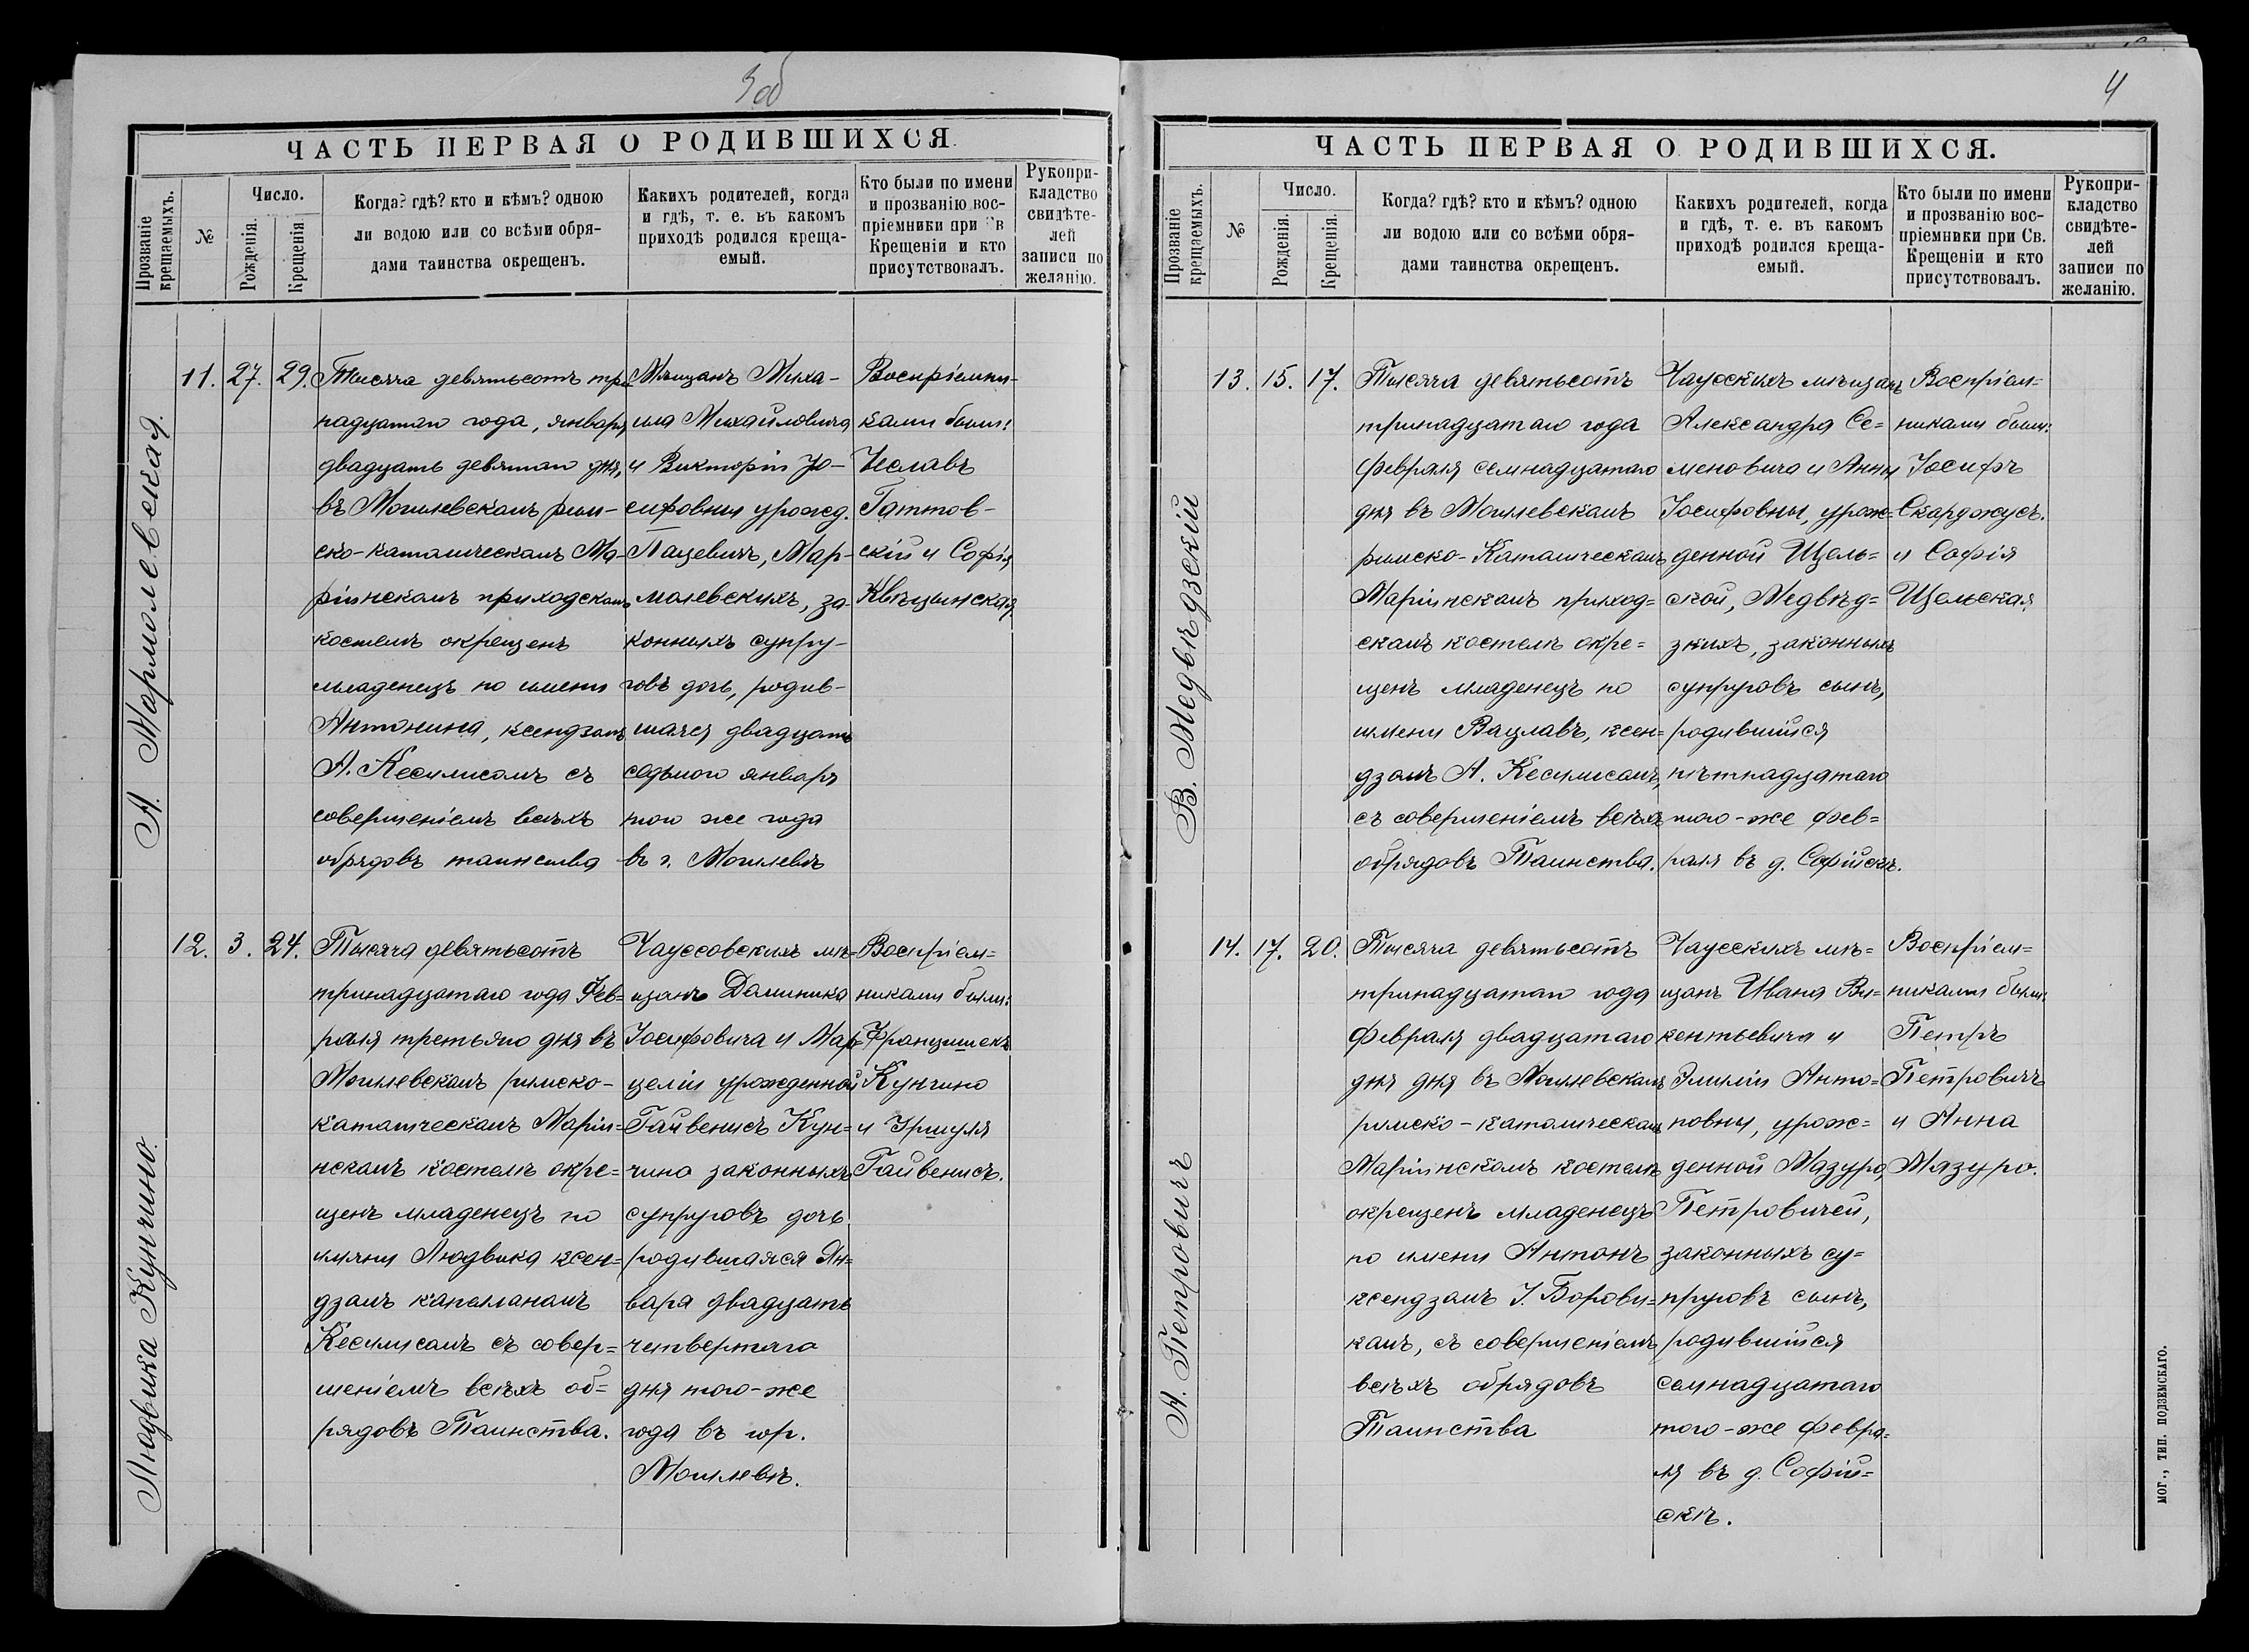 3 об
ЧАСТЬ ПЕРВАЯ О РОДИВШИХСЯ.
Прозваніе крещаемыхъ.
№
Число.
Рожденія.
Крещенія
Когда? гдѣ? кто и кѣмъ? одною
ли водою или со всѣми обря-
дами таинства окрещенъ.
Какихъ родителей, когда
и гдѣ, т. е. въ какомъ
приходѣ родился креща-
емый.
Кто были по имени
и прозванію вос-
пріемники при Св
Крещеніи и кто
присутствовалъ.
Рукопри-
кладство
свидѣте-
лей
записи по
желанію.
А. Мармолевская.
11.
27.
29.
Тысяча девятьсотъ три-
надцатаго года, января
двадцать девятаго дня,
въ Могилевскомъ рим-
ско-католическомъ Ма-
ріинскомъ приходскомъ
костелѣ окрещенъ
младенецъ по имени
Антонина, ксендзомъ
А. Кесилисомъ съ
совершеніемъ всѣхъ
обрядовъ таинства
Мѣщанъ Миха-
ила Михайловича
и Викторіи Іо-
сифовны урожд.
Пацевичъ, Мар-
молевскихъ, за-
конныхъ супру-
говъ дочь, родив-
шаяся двадцать
седьмого января
того же года
въ г. Могилевѣ
Воспріемни-
ками были:
Чеславъ
Гаттов-
скій и Софія
Квѣцынская
Людвика Кунчино.
12.
3.
24.
Тысяча девятьсотъ
тринадцатаго года Фев=
раля третьяго дня въ
Могилевскомъ римско-
католическомъ Маріи-
нскомъ костелѣ окре=
щенъ младенецъ по
имяни Людвика ксен=
дзомъ капеланомъ
Кесилисомъ съ совер=
шеніемъ всѣхъ об=
рядовъ Таинства.
Чауссовскихъ мѣ=
щанъ Доминика
Іосифовича и Мар=
целіи урожденной
Гайвенисъ Кун=
чино законныхъ
супруговъ дочь
родившаяся Ян=
вара двадцать
четвертаго
дня того-же
года въ гор.
Могилевѣ.
Воспріем=
никами были:
Францишекъ
Кунчино
и Уршуля
Гайвенисъ.
4
ЧАСТЬ ПЕРВАЯ О РОДИВШИХСЯ.
Прозваніе крещаемыхъ.
№
Число.
Рожденія.
Крещенія.
Когда? гдѣ? кто и кѣмъ? одною
ли водою или со всѣми обря-
дами таинства окрещенъ.
Какихъ родителей, когда
и гдѣ, т. е. въ какомъ
приходѣ родился креща-
емый.
Кто были по имени
и прозванію вос-
пріемники при Св.
Крещеніи и кто
присутствовалъ.
Рукопри-
кладство
свидѣте-
лей
записи по
желанію.
В. Медвѣдзскій
13.
15.
17.
Тысяча девятьсотъ
тринадцатаго года
февраля семнадцатаго
дня въ Могилевскомъ
римско-Католическомъ
Маріинскомъ приход=
скомъ костелѣ окре=
щенъ младенецъ по
имени Вацлавъ, ксен=
дзомъ А. Кесилисомъ,
съ совершеніемъ всѣхъ
обрядовъ Таинства.
Чаусскихъ мѣщанъ
Александра Се=
меновича и Анны
Іосифовны, урож=
денной Щель=
ской, Медвѣд=
зкихъ, законныхъ
супруговъ сынъ,
родившійся
пѣтнадцатаго
того-же фев=
раля въ д. Софійскѣ.
Воспріем=
никами были:
Іосифъ
Скарджусъ.
и Софія
Щельская
А. Петровичъ
14.
17.
20.
Тысяча девятьсотъ
тринадцатаго года
февраля двадцатаго
дня дня въ Могилевскомъ
римско-католическомъ
Маріинскомъ костелѣ
окрещенъ младенецъ
по имени Антонъ
ксендзомъ І. Борови=
комъ, съ совершеніемъ
всѣхъ обрядовъ
Таинства
Чаусскихъ мѣ=
щанъ Ивана Ви=
кентьевича и
Эмиліи Анто=
новны, урож=
денной Мазуро,
Петровичей,
законныхъ су=
пруговъ сынъ,
родившійся
семнадцатаго
того-же февра=
ля въ д. Софій=
скѣ.
Воспріем=
никами были:
Петръ
Петровичъ
и Анна
Мязуро.
МОГ., ТИП. ПОДЗЕМСКАГО.